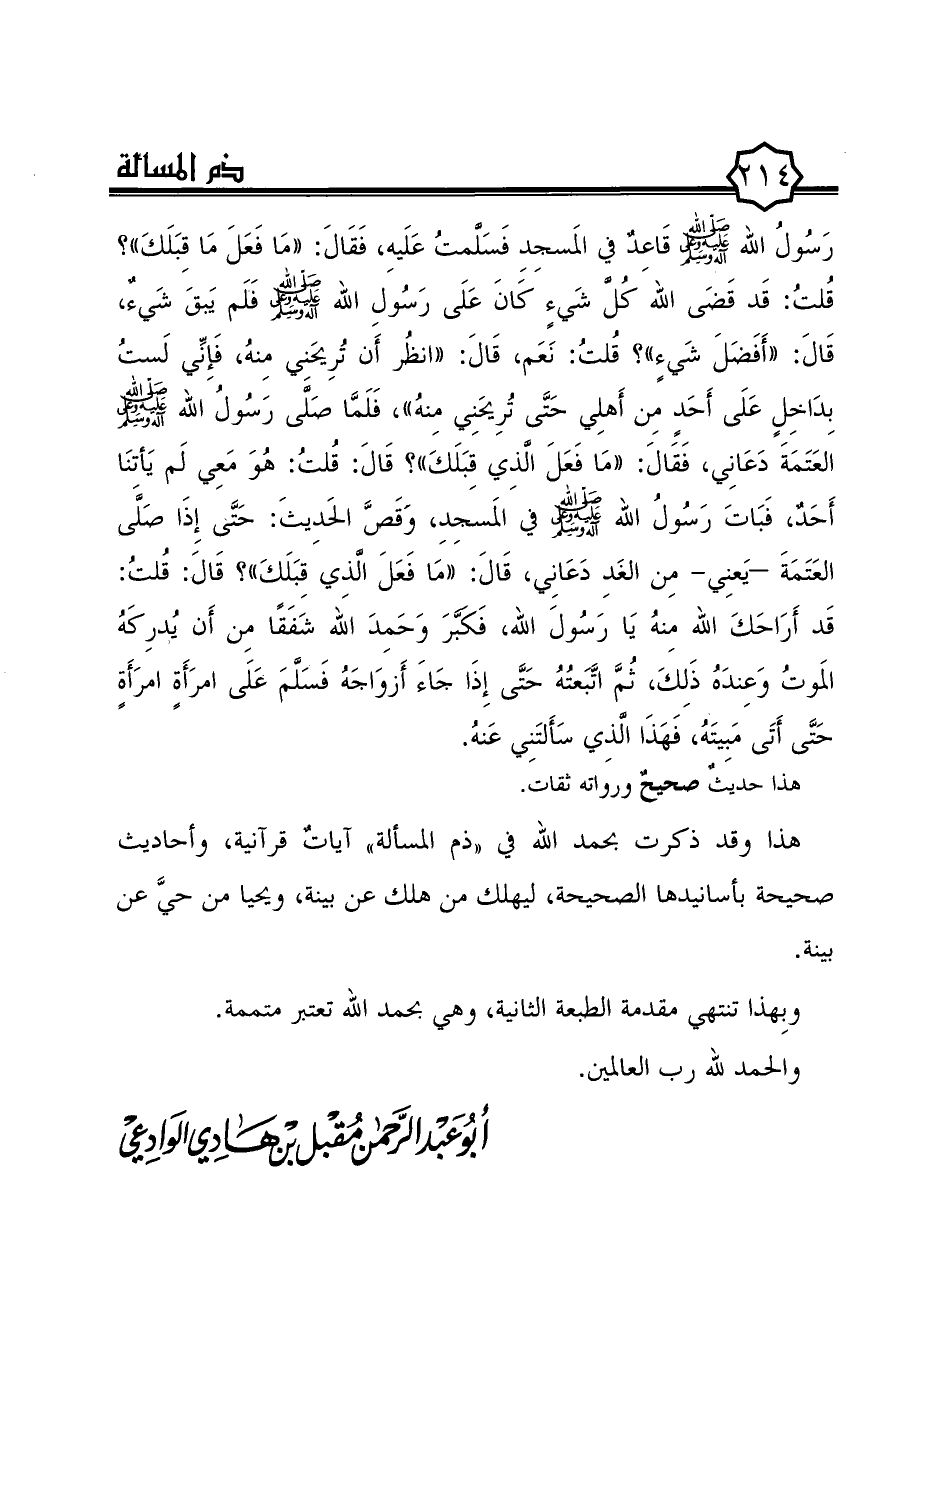 ذم المسألة
٢١٤
رَسُولُ الله ﷺ قَاعِدٌ فِي المَسجِدِ فَسَلَّمتُ عَلَيهِ، فَقَالَ: «مَا فَعَلَ مَا قِبَلَكَ»؟
قُلتُ: قَد قَضَى الله كُلَّ شَيءٍ كَانَ عَلَى رَسُولِ الله ﷺ فَلَم يَبقَ شَيءٌ،
قَالَ: «أَفَضَلَ شَيءٍ»؟ قُلتُ: نَعَم، قَالَ: «انظُر أَن تُرِيحَنِي مِنهُ، فَإِنِّي لَستُ
بِدَاخِلٍ عَلَى أَحَدٍ مِن أَهلِي حَتَّى تُرِيحَنِي مِنهُ»، فَلَمَّا صَلَّى رَسُولُ الله ﷺ
العَتَمَةَ دَعَانِي، فَقَالَ: «مَا فَعَلَ الَّذِي قِبَلَكَ»؟ قَالَ: قُلتُ: هُوَ مَعِي لَم يَأتِنَا
أَحَدٌ، فَبَاتَ رَسُولُ الله ﷺ فِي المَسجِدِ، وَقَصَّ الحَدِيثَ: حَتَّى إِذَا صَلَّى
العَتَمَةَ –يَعنِي- مِن الغَدِ دَعَانِي، قَالَ: «مَا فَعَلَ الَّذِي قِبَلَكَ»؟ قَالَ: قُلتُ:
قَد أَرَاحَكَ الله مِنهُ يَا رَسُولَ الله، فَكَبَّرَ وَحَمِدَ الله شَفَقًا مِن أَن يُدرِكَهُ
المَوتُ وَعِندَهُ ذَلِكَ، ثُمَّ اتَّبَعتُهُ حَتَّى إِذَا جَاءَ أَزوَاجَهُ فَسَلَّمَ عَلَى امرَأَةٍ امرَأَةٍ
حَتَّى أَتَى مَبِيتَهُ، فَهَذَا الَّذِي سَأَلتَنِي عَنهُ.
هذا حديثٌ صحيحٌ ورواته ثقات.
هذا وقد ذكرت بحمد الله في «ذم المسألة» آياتٌ قرآنية، وأحاديث
صحيحة بأسانيدها الصحيحة، ليهلك من هلك عن بينة، ويحيا من حيَّ عن
بينة.
وبهذا تنتهي مقدمة الطبعة الثانية، وهي بحمد الله تعتبر متممة.
والحمد لله رب العالمين.
أَبُو عَبْدِ الرَّحْمَنِ مُقْبِل بْنِ هَادِي الوَادِعِيّ